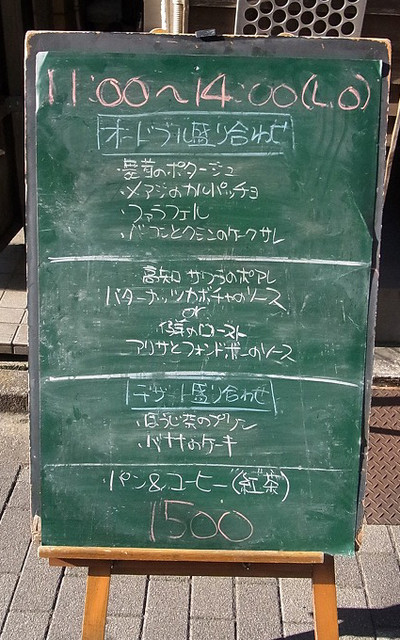 11:00～14:00(L.O)
オードブル盛り合わせ
・舞茸のポタージュ
・メアジのカルパッチョ
・ファラフェル
・ベーコンとクミンのケークサレ
高知口 サワラのポアレ
バターナッツカボチャのソース
or
仔羊のロースト
アリサとフォンドボーのソース
デザート盛り合わせ
・ほうじ茶のプリン
・バナナのケーキ
・パン&コーヒー(紅茶)
1500